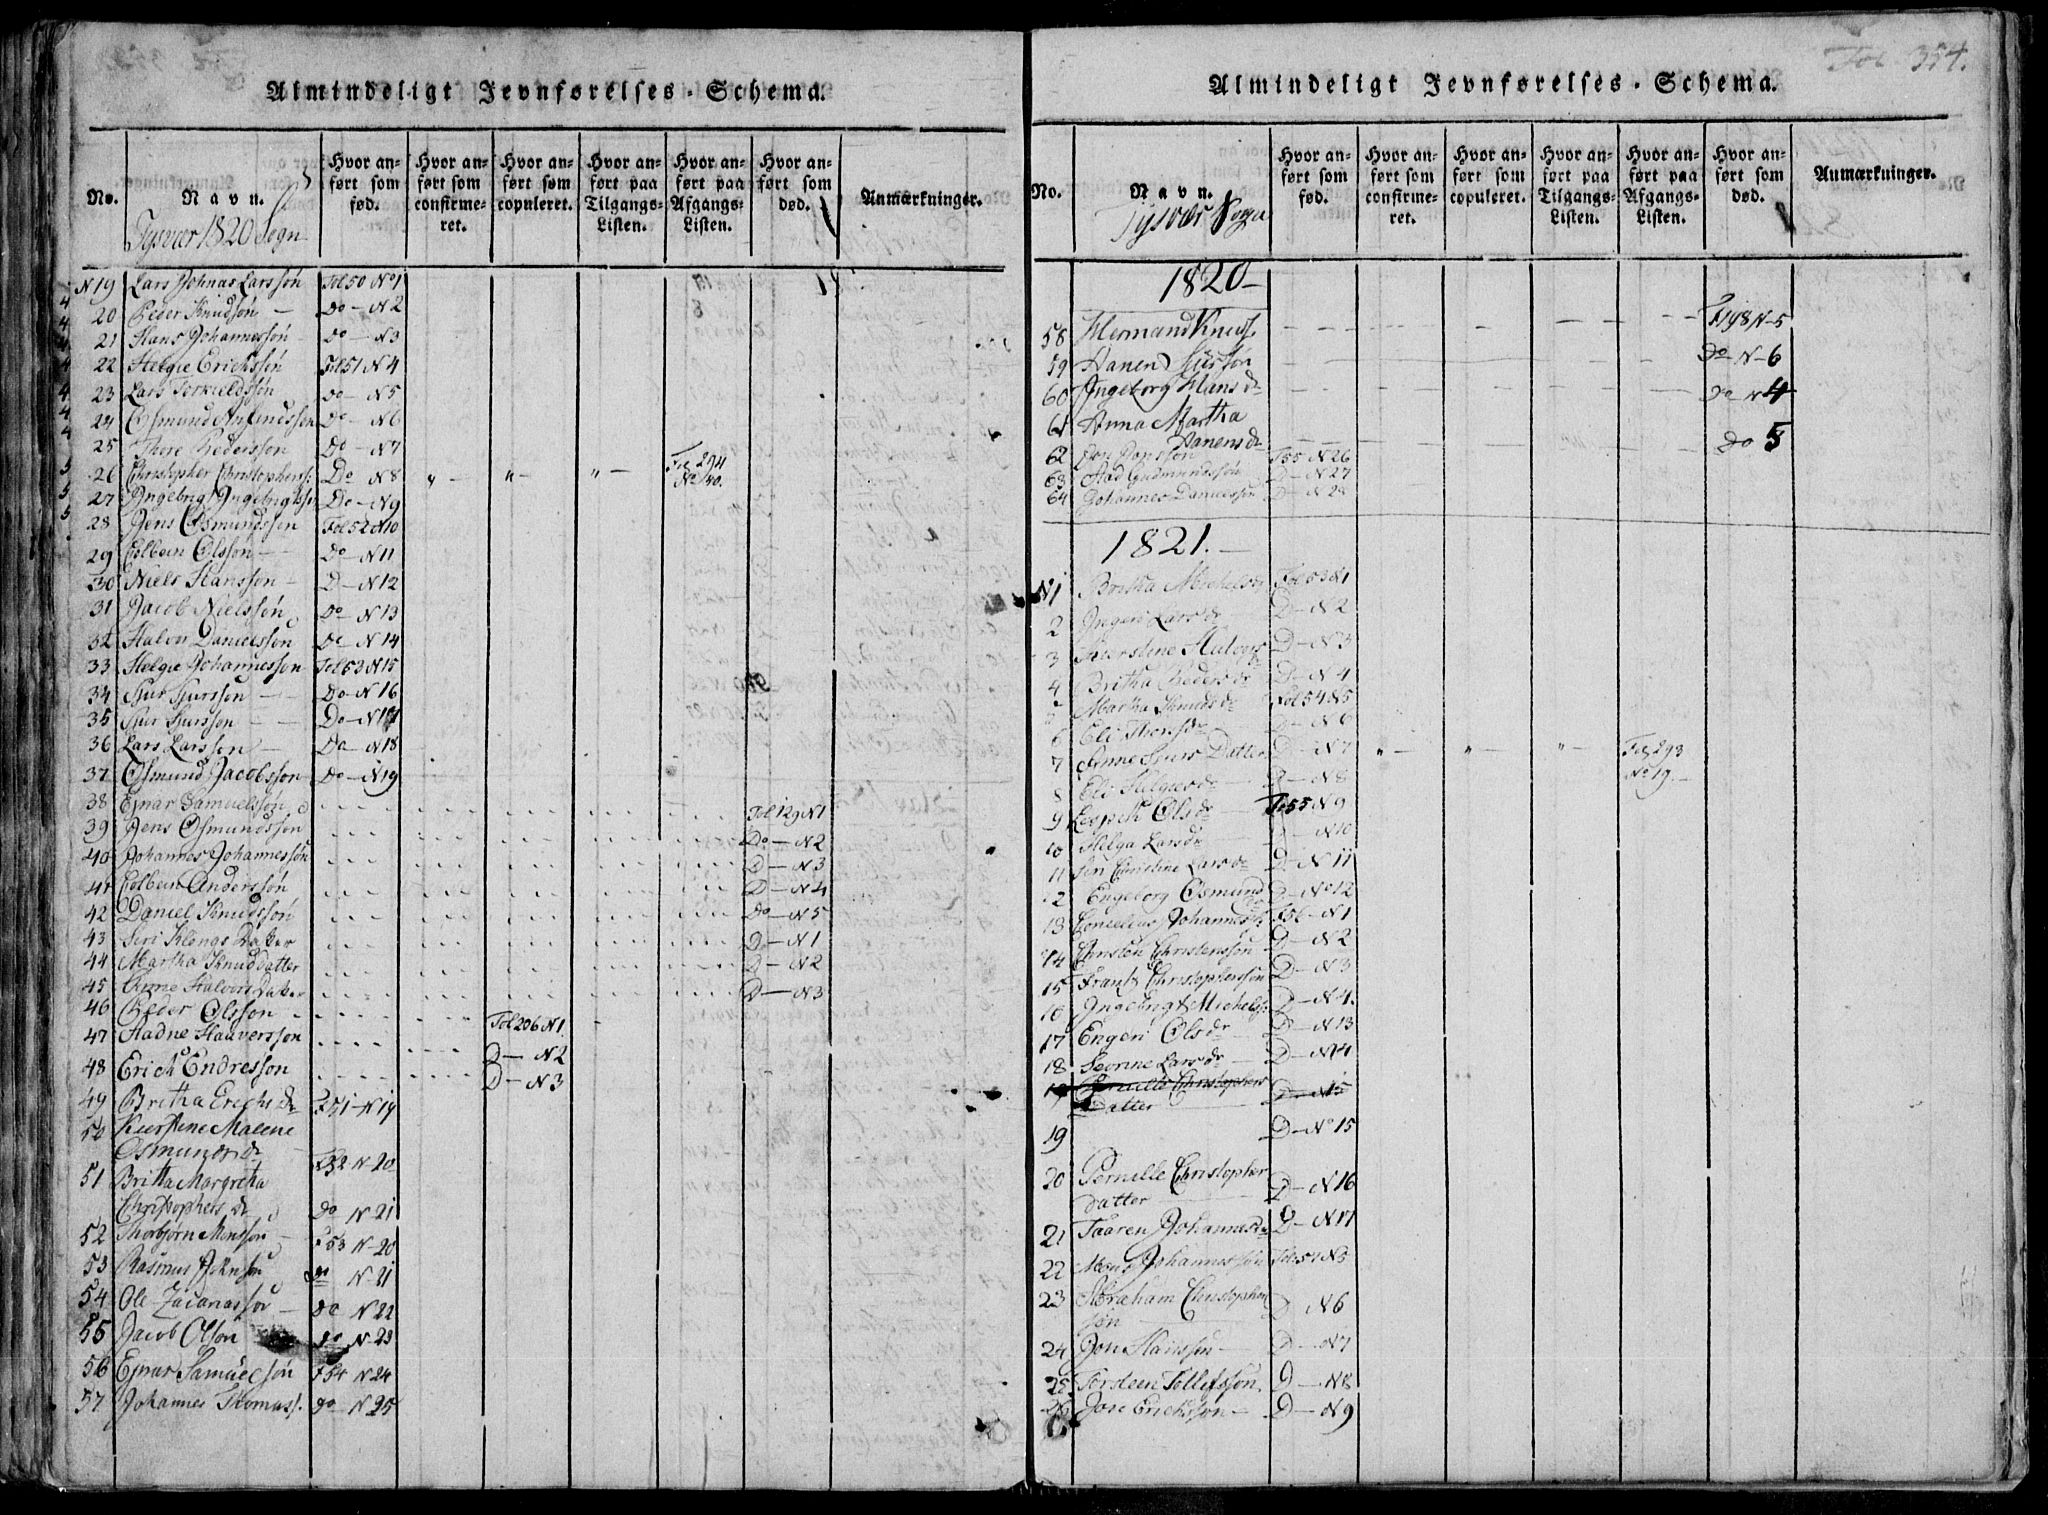 Almindeligt Jevnførelses-Schema.
No.
Navn.
Hvor anført som fød.
Hvor anført som confirmeret.
Hvor anført som copuleret.
Hvor anført paa Tilgangs-Listen.
Hvor anført paa Afgangs-Listen.
Hvor anført som død.
Anmærkninger.
Tysvær 1820 Sogn
N 19 Lars Johnas Larssøn Fol 50 No 1
20 Peder Knudsøn Do N 2
21 Hans Johannessøn Do N 3
22 Helgie Erichssøn Fol 51 N 4
23 Lars Torkieldssøn Do N 5
24 Osmund Do N 6
25 Thore Pederssøn Do N 7
26 Christopher Christophers: Do N 8 " " " Fol 294 No 40.
27 Ingebrigt Ingebrigtss Do N 9
28 Jens Osmundssøn Fol 52 N 10
29 Colbein Olssøn Do N 11
30 Niels Hanssøn D N 12
31 Jacob Nielssøn Do N 13
32 Halvor Danielssøn Do N 14
33 Helgie Johannessøn Fol 53 N 15
34 Siur Siurssøn Do N 16
35 Siur Siurssøn Do N 17
36 Lars Larssøn Do N 18
37 Osmund Jacobssøn Do N 19
38 Ejnar Samuelssøn Fol 129 N 1
39 Jens Osmundssøn Do N 2
40 Johannes Johannessøn D N 3
41 Colbein Anderssøn D N 4
42 Daniel Knudssøn Do N 5
43 Siri Klengs Datter D N 1
44 Martha Knuddatter D N 2
45 Anne Halvors Datter D N 3
46 Peder Olssøn Fol 206 N 1
47 Hadne Haaverssøn D N 2
48 Erich Endressøn D N 3
49 Britha Erichs dr F 51 N 19
50 Kierstine Malene
Osmunds dr F 52 N 20
51 Britta Margretha
Christophers dr do N 21
52 Thorbjørn Monssøn F 53 N 20
53 Rasmus Johnsøn do N 21
54 Ole Zacariassøn do N 22
55 Jacob Olsøn do N 23
56 Ejnar Samuelsøn F 54 N 24
57 Johannes Thomass. do N 25
Fol 354.
Almindeligt Jevnførelses-Schema.
No.
Navn.
Hvor anført som fød.
Hvor anført som confirmeret.
Hvor anført som copuleret.
Hvor anført paa Tilgangs-Listen.
Hvor anført paa Afgangs-Listen.
Hvor anført som død.
Anmærkninger.
Tysvær Sogn
1820
58 Hermand Knuds. F 198 N 5
59 Hanen Siurssøn Do N 6
60 Ingeborg Hans dr Do N 4
61 Anna Martha
Hanens dr do 5
62 Jon Jonssøn F 55 N 26
63 Gudmundssøn D N 27
64 Johannes Danielssøn D N 28
1821.
N 1 Britha Michels dr Fol 53 N 1
2 Ingeri Lars dr D N 2
3 Kierstine D N 3
4 Britha Peders dr D N 4
5 Martha Knuds dr Fol 54 N 5
6 Eli Thors dr D N 6
7 Anne Siurs Datter D N 7 " " " Fol 293 No 19.
8 Eli Helgies dr D N 8
9 Lispeth Ols dr Fol 55 N 9
10 Helga Lars dr D N 10
11 Christine Lars dr D N 11
12 Engeborg Osmund dr D No 12
13 Cornelius Johannes F 56 N 1
14 Christen Christenssøn D N 2
15 Frants Christopherssøn D N 3
16 Ingebrigt Michelss: D N 4
17 Engeri Ols dr D N 13
18 Severine Lars dr D N 14
19 Pernille Christophers
Datter D N 15
19 D No 15
20 Pernille Christopher
datter D N 16
21 Taaren Johannes dr D N 17
22 Mons Johannessøn Fol 57 N 5
23 Abraham Christopher
søn D N 6
24 Jon Hanssøn D N 7
25 Torsteen Tollefssøn D N 8
26 Jone Erichssøn D N 9